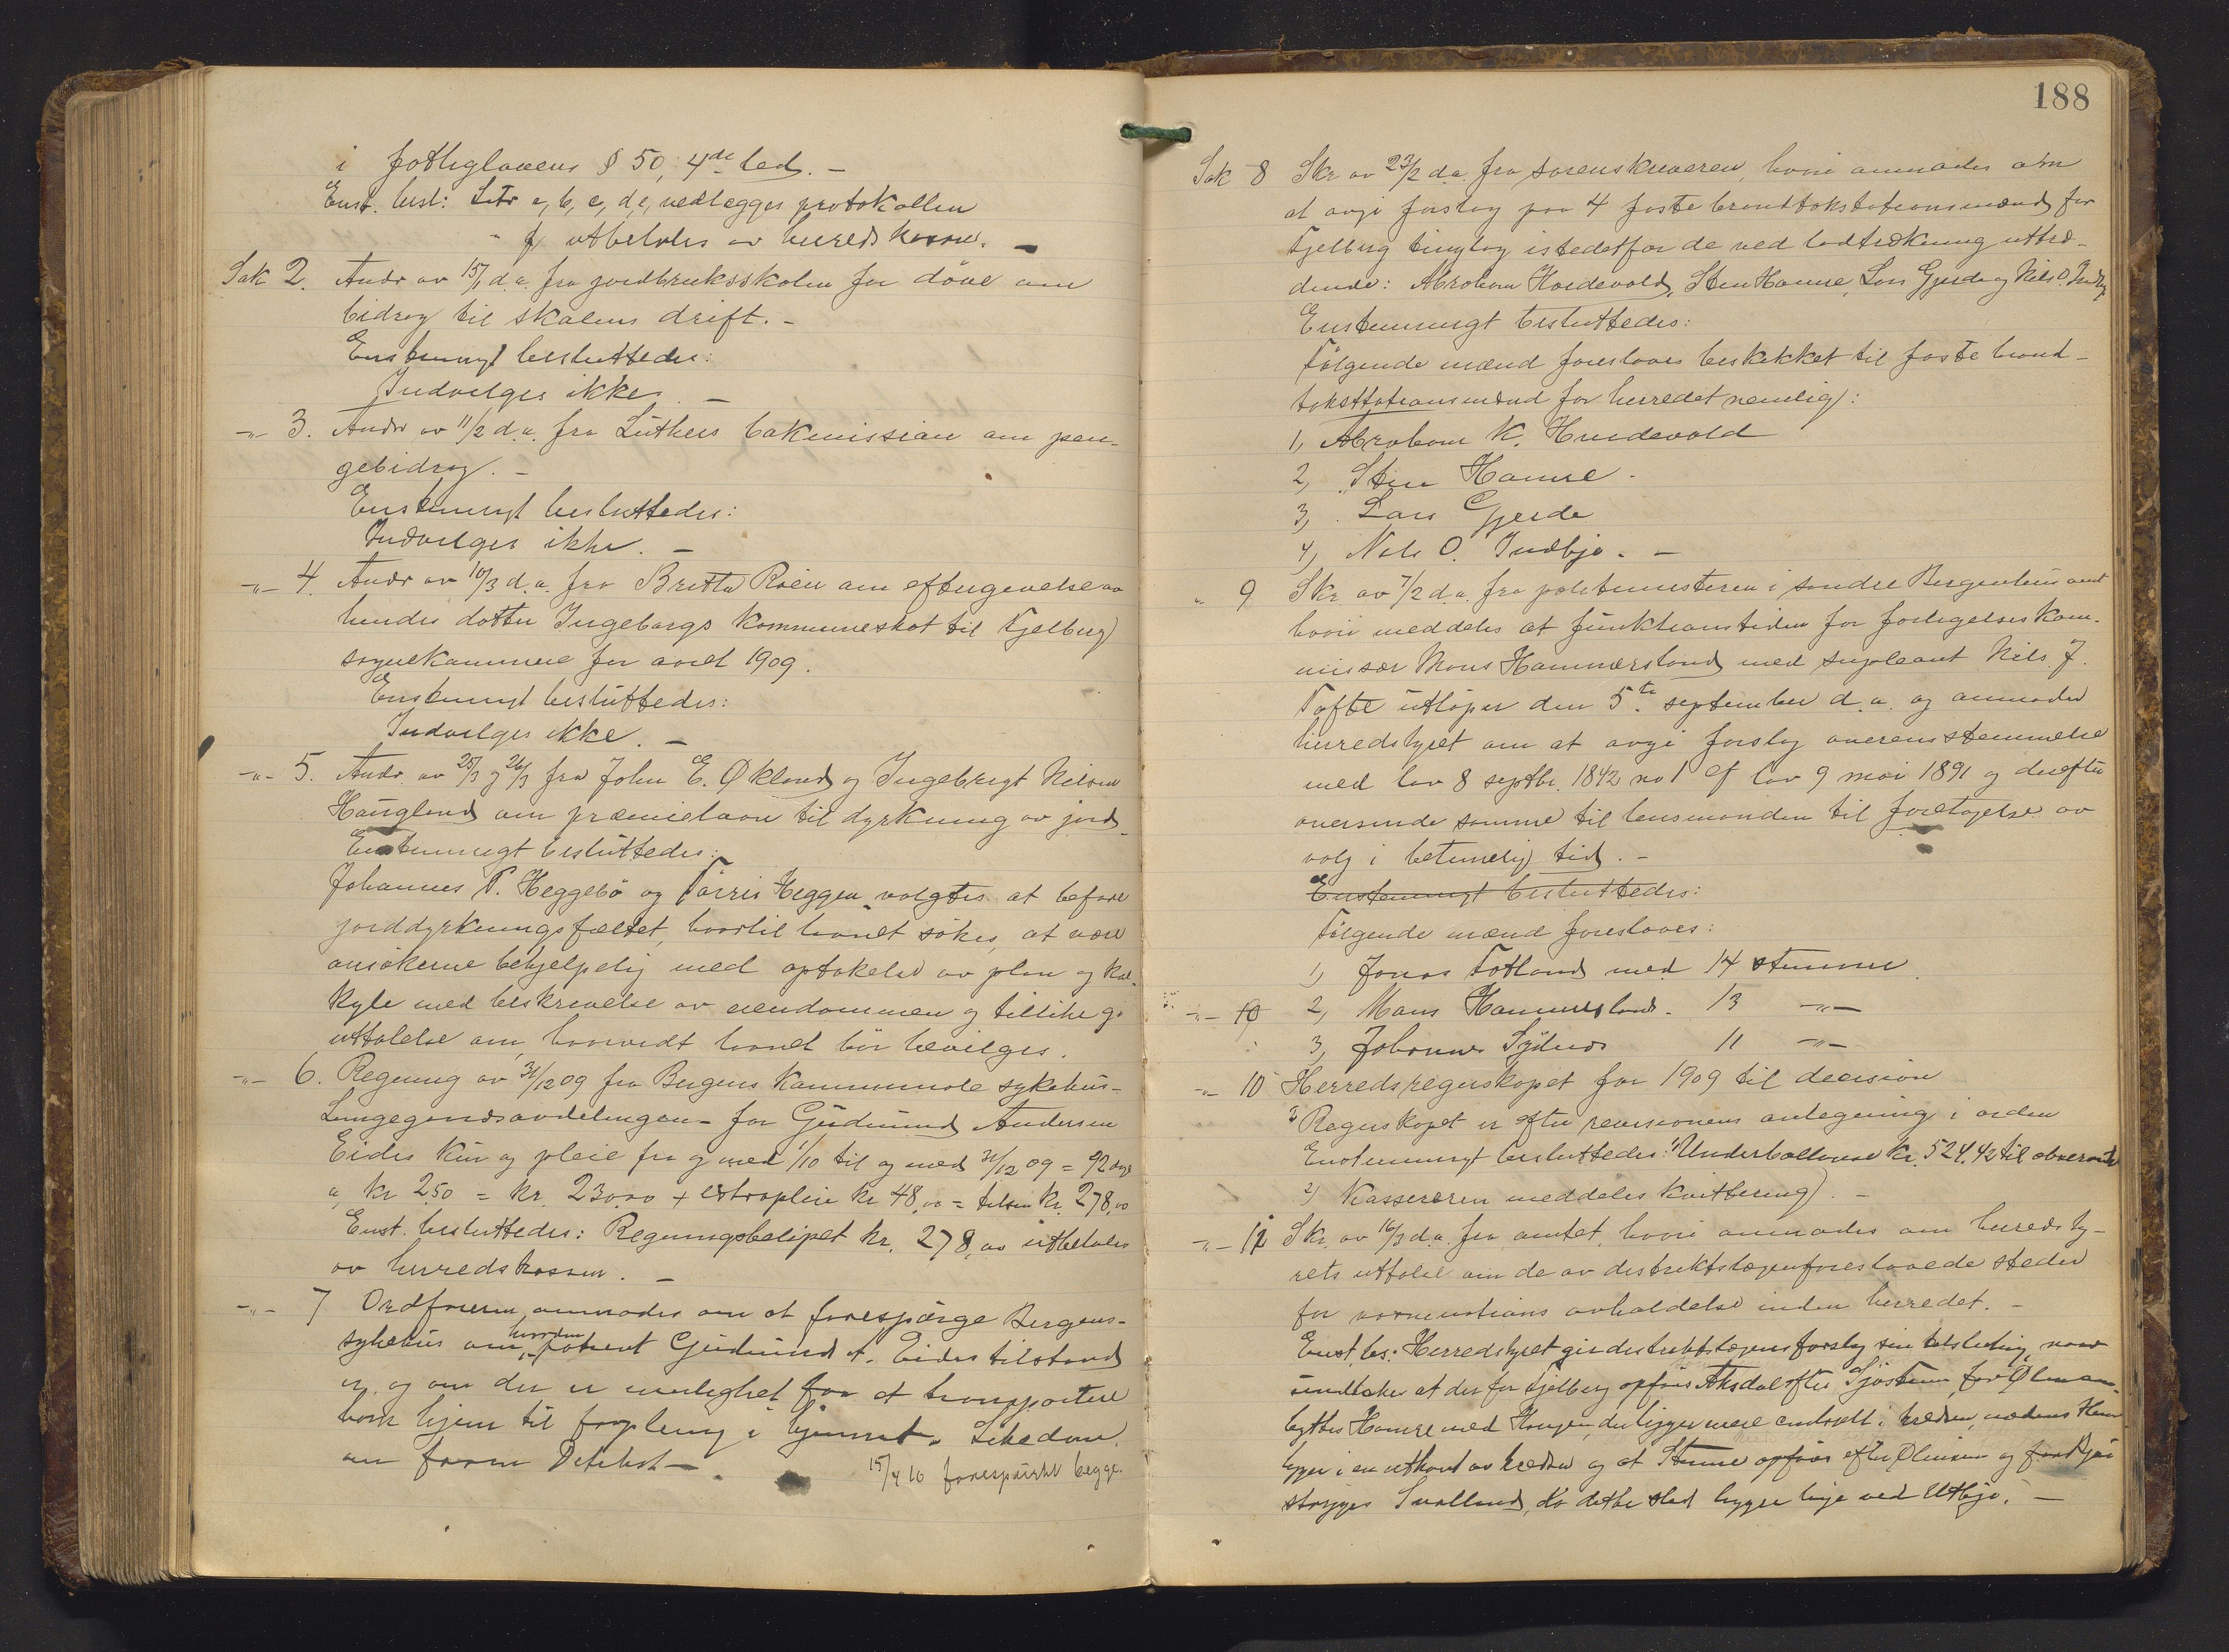 i fattiglovens § 50, 4de led. –
Enst. besl: Litr a, b, c, d, e, vedlægges protokollen
" f, utbetales av herredskassen. –
Sak 2. Andr av 15/1 d.a. fra jordbruksskolen for döve om
bidrag til skolens drift. –
Enstemmigt besluttedes:
Indvilges ikke. –
-"- 3. Andr av 11/2 d.a. fra Luthers bakmission om pen-
gebidrag. –
Enstemmigt besluttedes:
Indvilges ikke. –
-"- 4. Andr av 10/3 d.a. fra Britta Röen om eftergivelse av
hendes datter Ingeborgs kommuneskat til Fjelberg
sognekommune for aaret 1909.
Enstemmigt besluttedes:
Indvilges ikke. –
-"- 5. Andr. av 25/3 og 26/3 fra John E. Økland og Ingebrigt Nilsen
Haugland om præmielaan til dyrkning av jord.
Enstemmigt besluttedes:
Johannes P. Heggebö og Törris Heggen valgtes at befare
jorddyrkningsfeltet, hvortil laanet sökes, at være
ansökerne behjelpelig med optakelse av plan og kal-
kyle med beskrivelse av eiendommen og tillike gi
uttalelse om, hvorvidt laanet bör bevilges.
-"- 6. Regning av 31/12 09 fra Bergens kommunale sykehus-
Lungegaardsavdelingen- for Gudmund Andersen
Eides kur og pleie fra og med 1/10 til og med 31/12 09 = 92 dage
a, kr 2,50 = kr. 230,00 + extrapleie kr 48,00 = tilsam kr. 278,00
Enst. besluttedes: Regningsbelöpet kr. 278,00 utbetales
av herredskassen. –
-"- 7 Ordföreren anmodes om at forespörge Bergens-
sykehus om, hvordan patient Gudmund A. Eides tilstand
er, og om der er mulighet for at transportere
ham hjem til forpleining i hjemmet. Likedan
om
15/4 10 forespurt begge.
188
Sak 8 Skr av 23/2 d.a. fra sorenskriveren, hvori anmodes om
at avgi forslag paa 4 faste brandtakstationsmænd for
Fjelberg tinglag istedetfor de ved lodtrækning uttræ-
dende: Abraham Hordevold, Sten Hamre, Lars Gjerde og Nils O. Indbjo
Enstemmigt besluttedes:
Fölgende mænd foreslaaes beskikket til faste brand-
taksttationsmænd for herredet nemlig:
1, Abraham K. Hordevold
2, Sten Hamre –
3, Lars Gjerde
4, Nils O. Indbjo. –
" 9 Skr av 7/2 d.a. fra politimesteren i söndre Bergenhus amt
hvori meddeles at funktionstiden for forligelseskom-
missær Mons Hammersland med supleant Nils J.
Tofte utlöper den 5te september d.a. og anmodes
herredstyret om at avgi forslag overensstemmelse
med lov 8 septbr. 1842 no 1 cf lov 9 mai 1891 og derefter
oversende samme til lensmanden til foretagelse av
valg i betimelig tid. –
Enstemmigt besluttedes:
Fölgende mænd foreslaaes:
1, Jonas Totland med 14 stemmer
-"- 10 2, Mons Hammersland. 13 -"-
3, Johannes 11 -"-
-"- 10 Herredsregnskapet for 1909 til decision
Regnskapet er efter revisionens antegning i orden
Enstemmigt besluttedes: 1, Underballance kr. 524,42 til
2, Kassereren meddeles kvittering). –
-"- 12 Skr. av 16/3 d.a. fra amtet, hvori anmodes om heredsty-
rets uttalelse om de av distriktslægen foreslaaede steder
for avholdelse inden herredet. –
Enst. bes: Herredstyret gir distriktslægens forslag sin tilslutning, naar
undtakes at der for Fjelberg opföres Aksdal efter Sjöstrøm, for Ølmen
byttes Hamre med Haugen, der ligger mere centralt i kredsen, medens Hamre
ligger i en utkant av kredsen og at opföres efter Ølmen og
strykes Svolland, da dette sted ligger like ved Utbjo. –